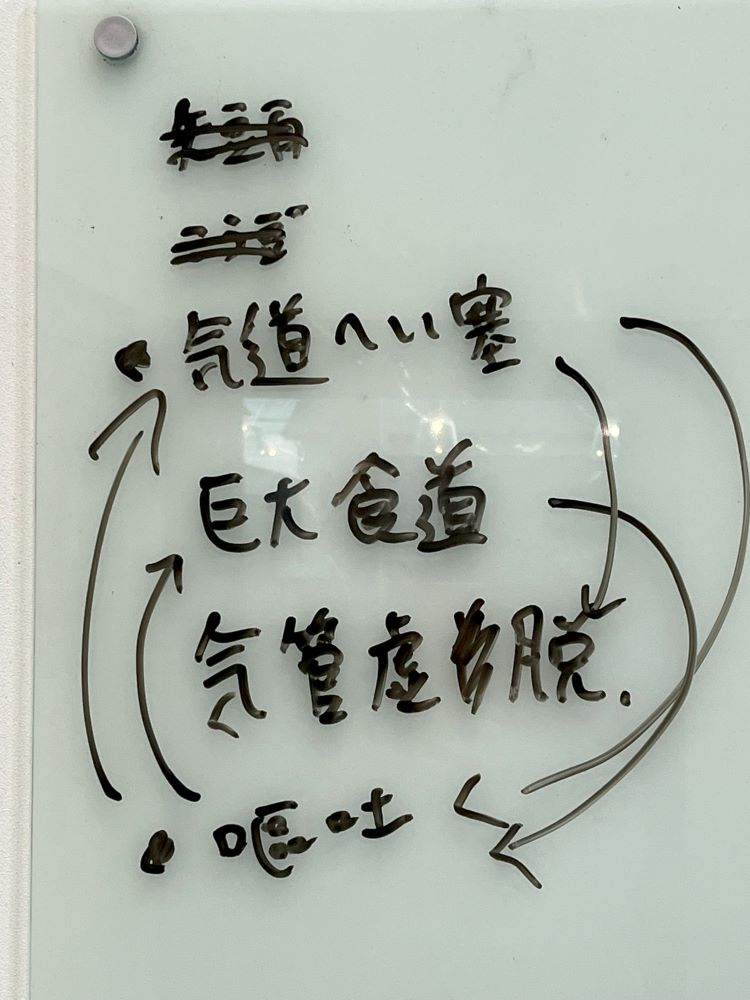 ・気道へい塞
巨大食道
気管虚脱.
・嘔吐